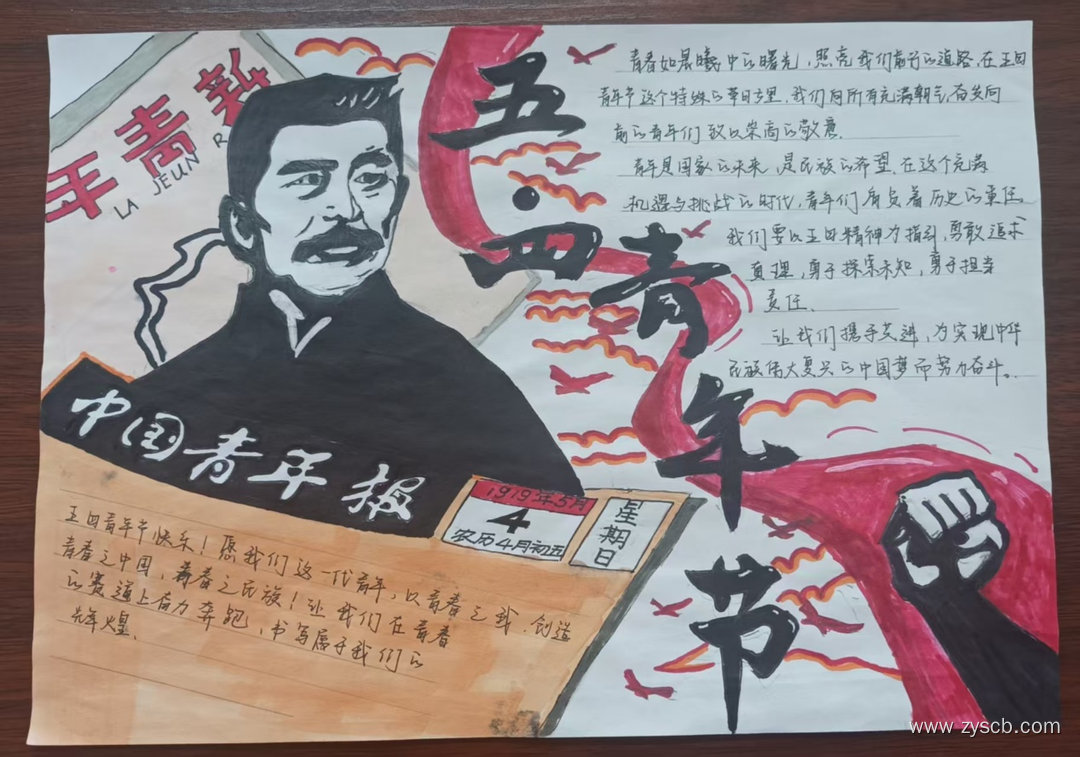 年青新
LA JEUN
五·四青年节
青春如晨曦中的曙光,照亮我们前行的道路.在五四
青年节这个特殊的节日里,我们向所有充满朝气,奋发向
前的青年们致以崇高的敬意.
青年是国家的未来,是民族的希望.在这个充满
机遇与挑战的时代,青年们肩负着历史的重任
我们要以五四精神为指引,勇敢追求
真理,勇于探索未知,勇于担当
责任.
让我们携手共进,为实现中华
民族伟大复兴的中国梦而努力奋斗。
中国青年报
1919年5月
4
农历4月初五
星期日
五四青年节快乐!愿我们这一代青年,以青春之我.创造
青春之中国,青春之民族!让我们在青春
的赛道上奋力奔跑,书写属于我们的
辉煌.
www.zyscb.com